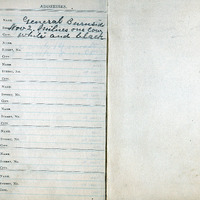 ADDRESSES.
NAME General Burnside
Nov 2
one cow
CITY white and black
NAME
STREET, NO.
CITY
NAME
STREET, NO.
CITY
NAME
STREET, NO.
CITY
NAME
STREET, NO.
CITY
NAME
STREET, NO.
CITY
NAME
STREET, NO.
CITY
NAME
STREET, NO.
CITY